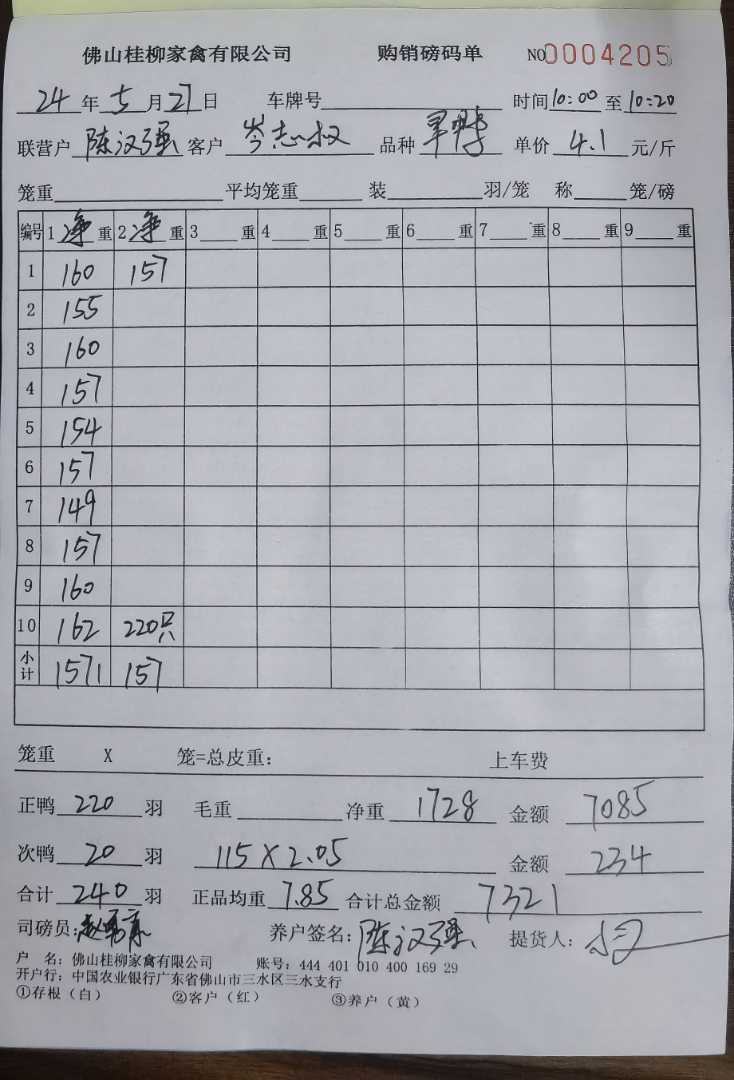 佛山桂柳家禽有限公司 购销磅码单 NO0004205
24年5月27日 车牌号 时间10:00至10:20
联营户陈汉强客户岑志权 品种 单价4.1元/斤
笼重 平均笼重 装 羽/笼 称 笼/磅
编号 1净重 2净重 3 重 4 重 5 重 6 重 7 重 8 重 9 重
1 160 157
2 155
3 160
4 157
5 154
6 157
7 149
8 157
9 160
10 162 220只
小计 1571 157
笼重 X 笼=总皮重: 上车费
正鸭220羽 毛重 净重1728 金额7085
次鸭20羽 115×2.05 金额234
合计240羽 正品均重7.85 合计总金额7321
司磅员: 养户签名:陈汉强 提货人:
户 名: 佛山桂柳家禽有限公司 账号: 444 401 010 400 169 29
开户行: 中国农业银行广东省佛山市三水区三水支行
①存根(白) ②客户(红) ③养户(黄)